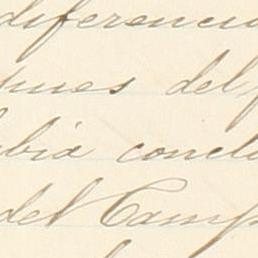 diferencia
pues del
abia conclu
del Camp